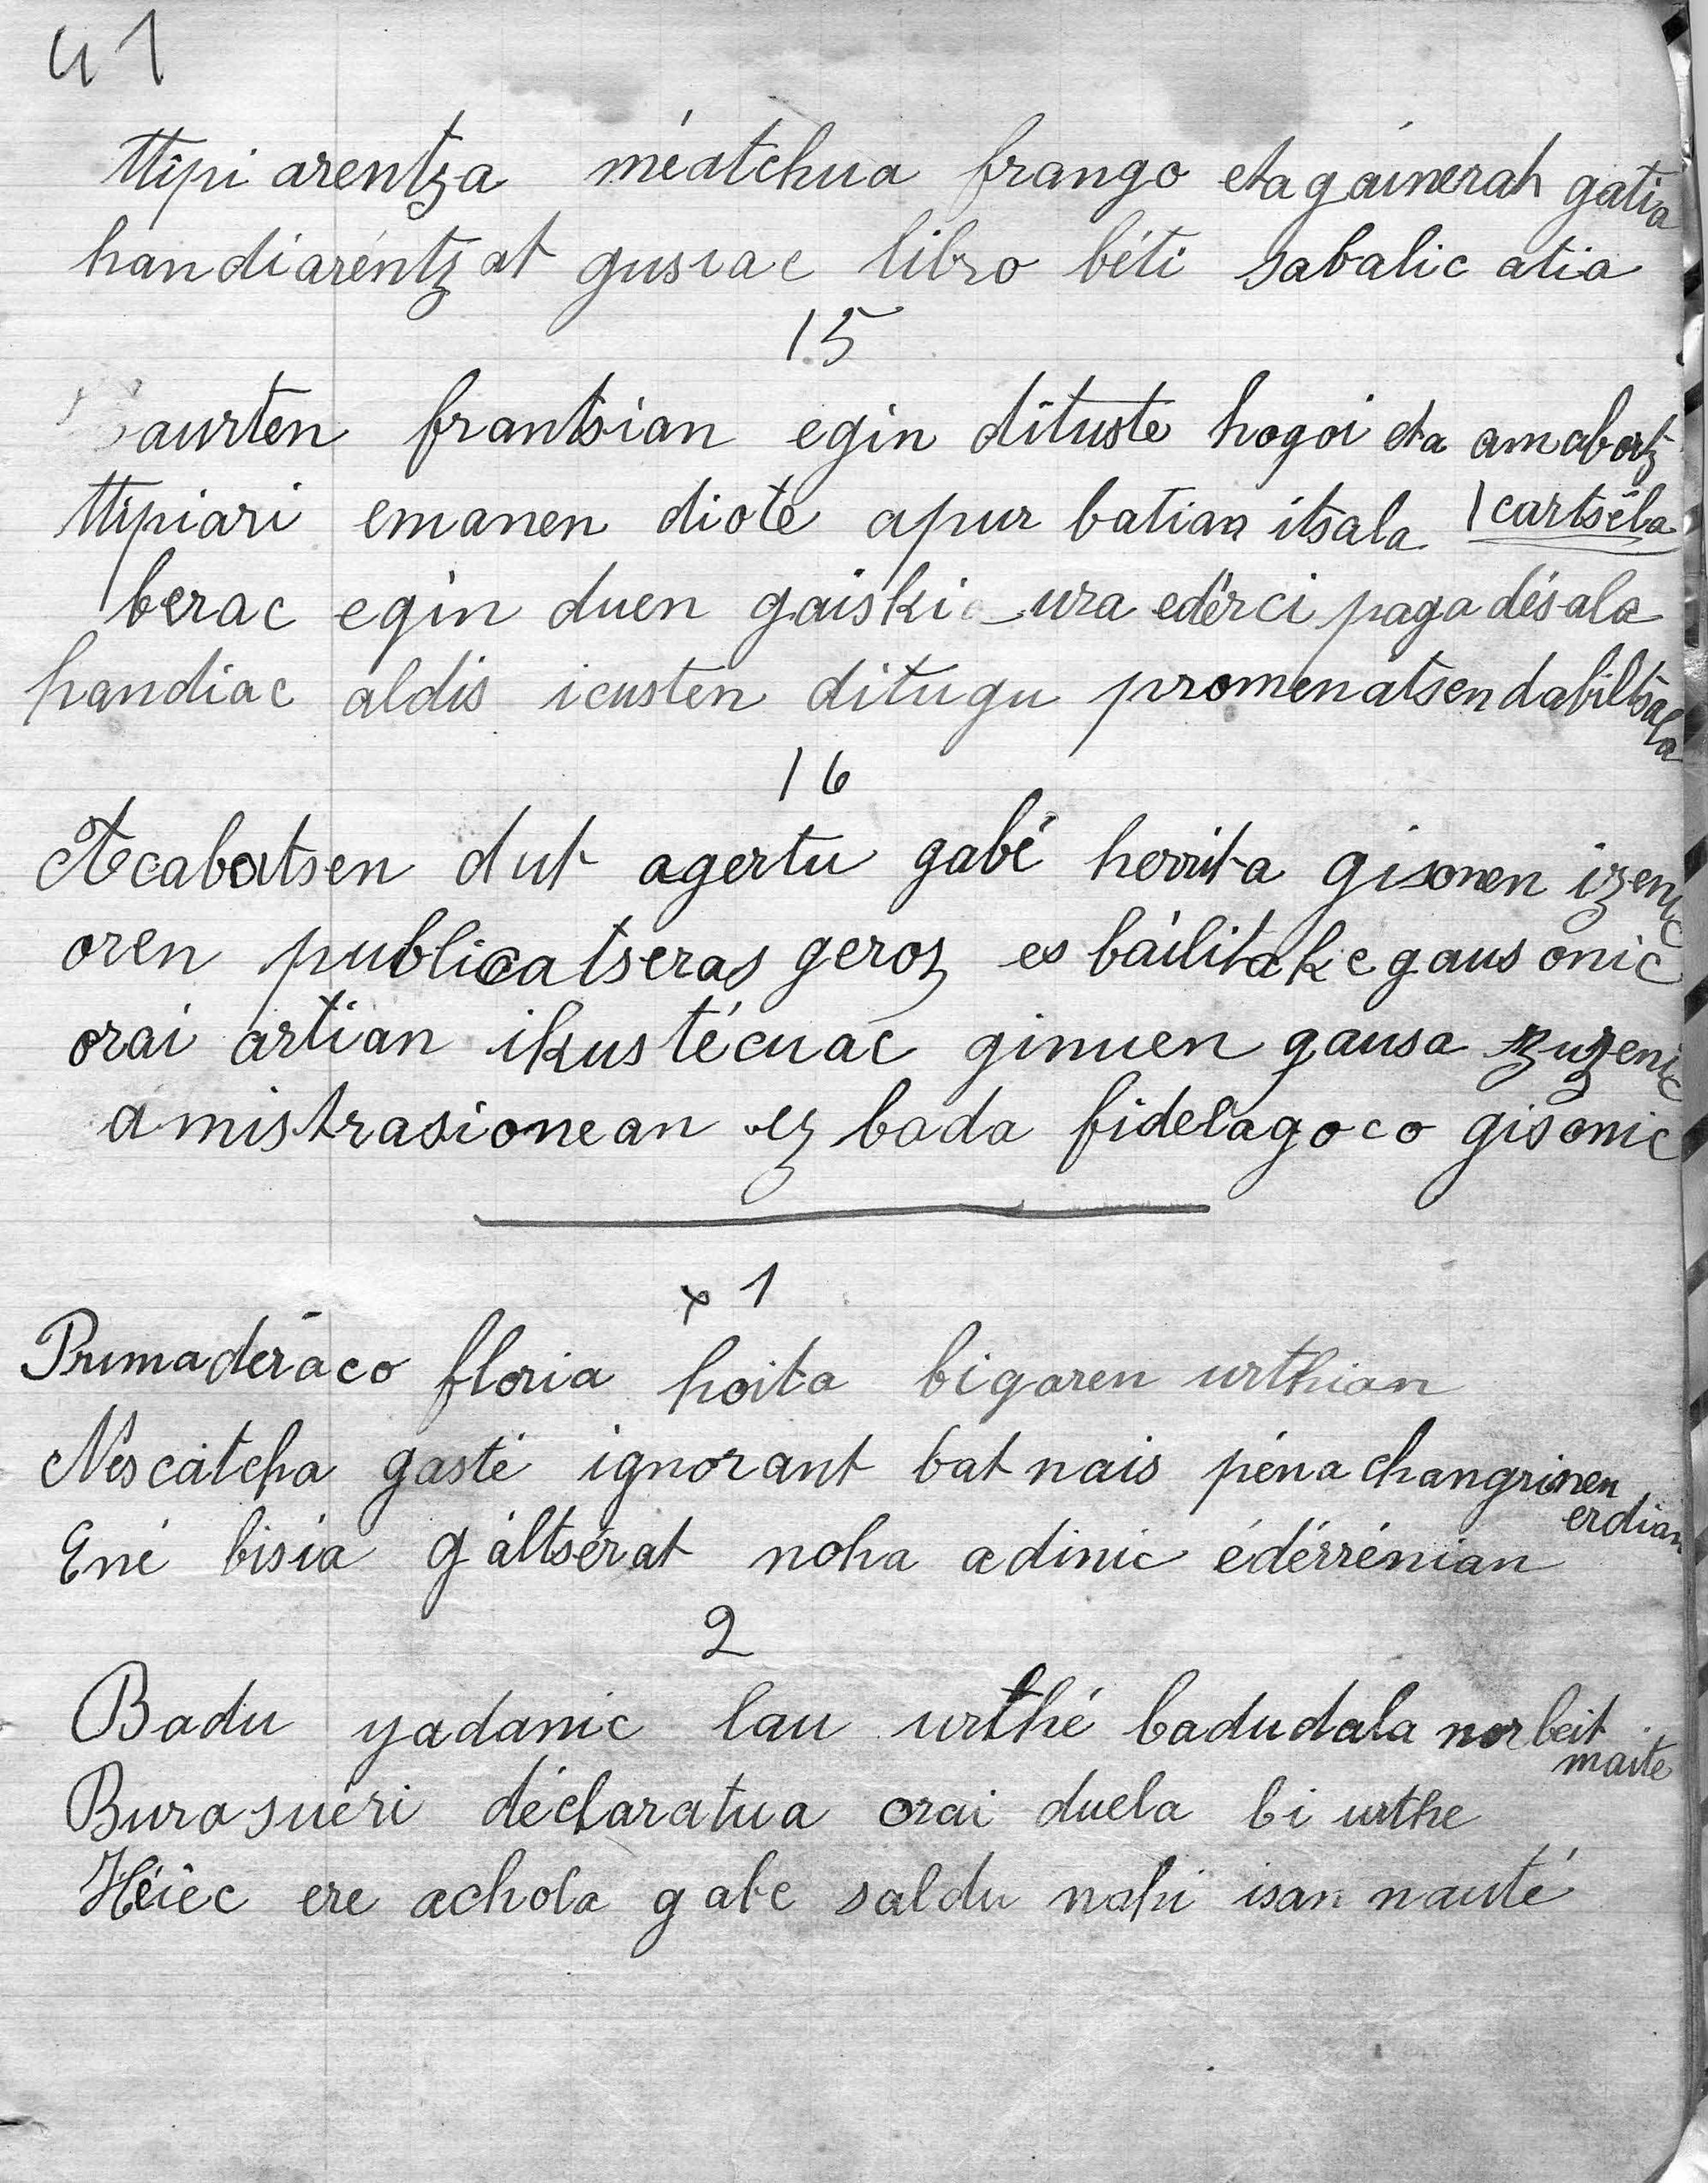 41
ttipi arentza méatchua frango eta gáinerah gatia
handiaréntzat gusiac libro béti sabalic atia
15
aurten frantsian egin dituste hogoi eta amabortz
ttipiari emanen diote apur batian itsala cartsela
berac egin duen gaiskia ura edérci paga désala
handiac aldis icusten ditugu promenatsen dabiltsala
16
Acabatsen dut agertu gabé herrita gisonen izenic
oren publicatseras geroz es báilitake gausonic
orai artian ikustécuac ginuen gausa zuzenic
amistrasionean ez bada fidelagoco gisonic
x 1
Primadéraco floria hoita bigaren urthian
Nescatcha gasté ignorant bat nais péna changrinen
erdian
Ené bisia gáltsérat noha adinic édérrénian
2
Badu yadanic lau urthé badudala norbeit
maite
Burasuéri déclaratua orai duela bi urthe
Héiéc ere achola gabe saldu nahi isan nauté